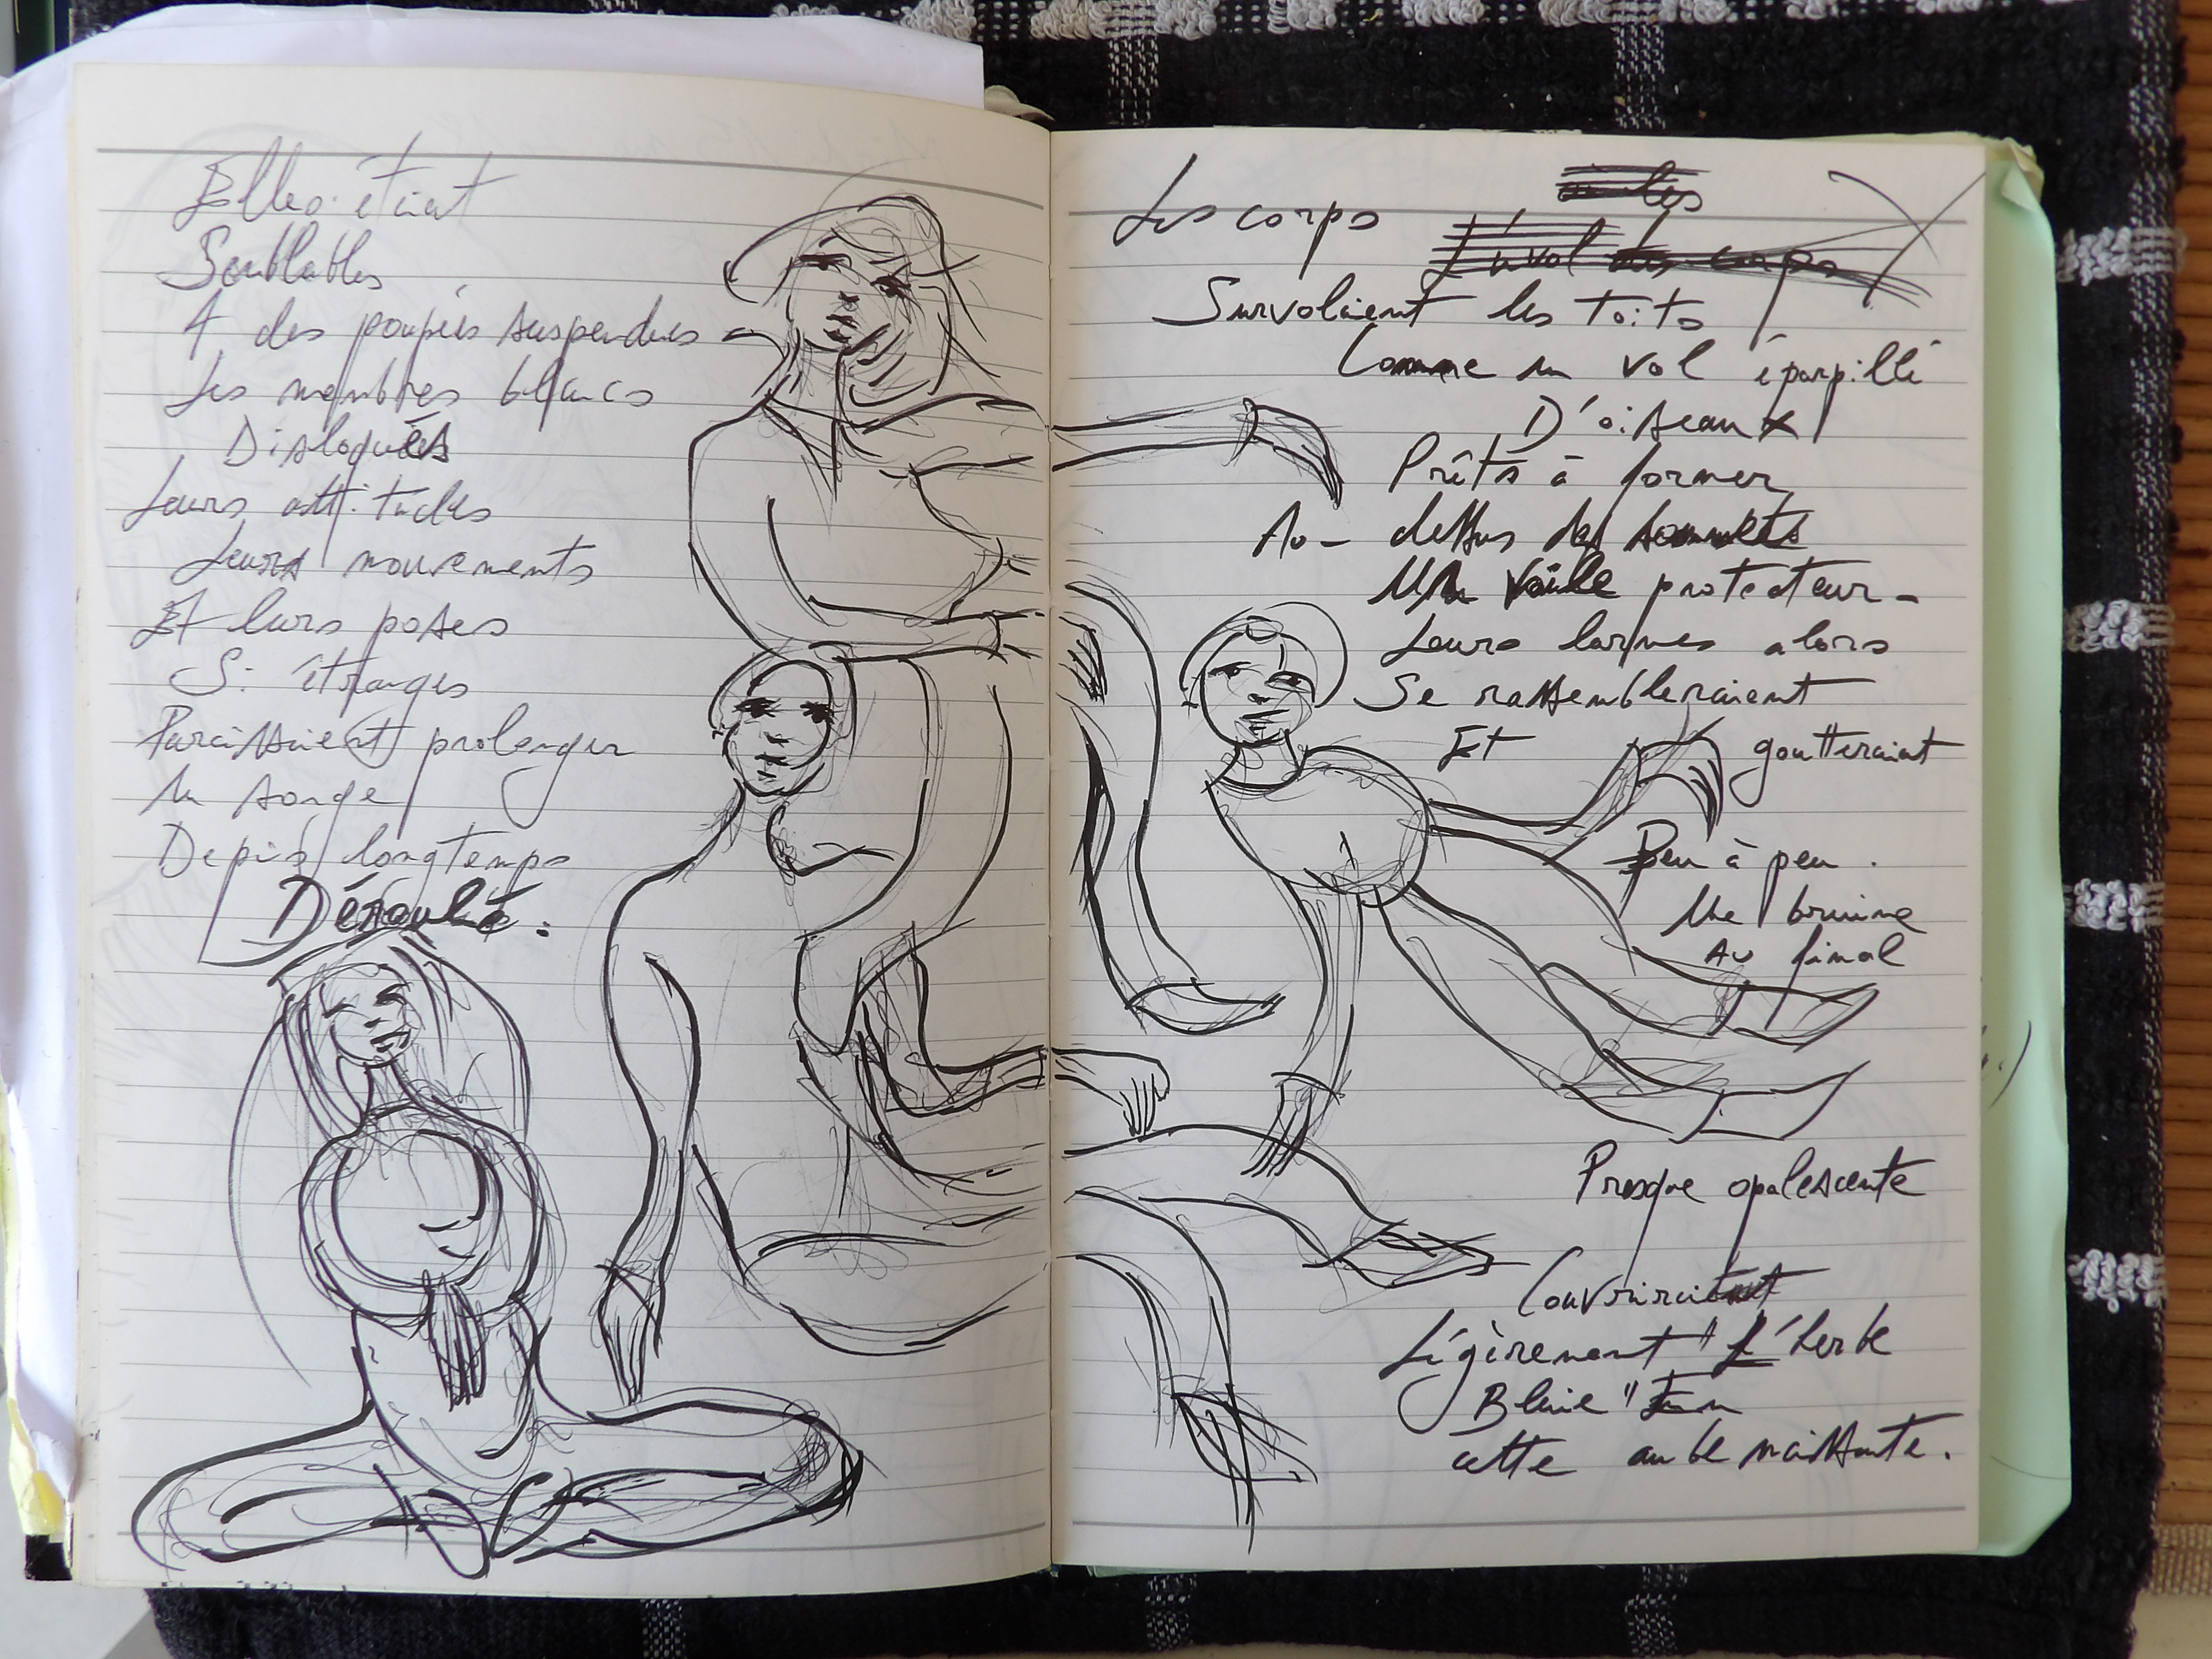 Elles étaient
Semblables
A des poupées suspendues -
Les membres blancs
Disloqués
Leurs attitudes
Leurs mouvements
Et leurs poses
Si étranges
Paraissaient prolonger
Un songe
Depuis longtemps
Déroulé.
les
Les corps
L'envol des corps
Survolaient les toits
Comme un vol éparpillé
D'oiseaux
Prêts à former,
Au-dessus des sommets
Un voile protecteur -
Leurs larmes alors
Se rassembleraient
Et goutteraient
Peu à peu.
Une bruine
Au final
Presque opalescente
Couvrirait
Légèrement "L'herbe
Bleue" En
cette aube naissante.